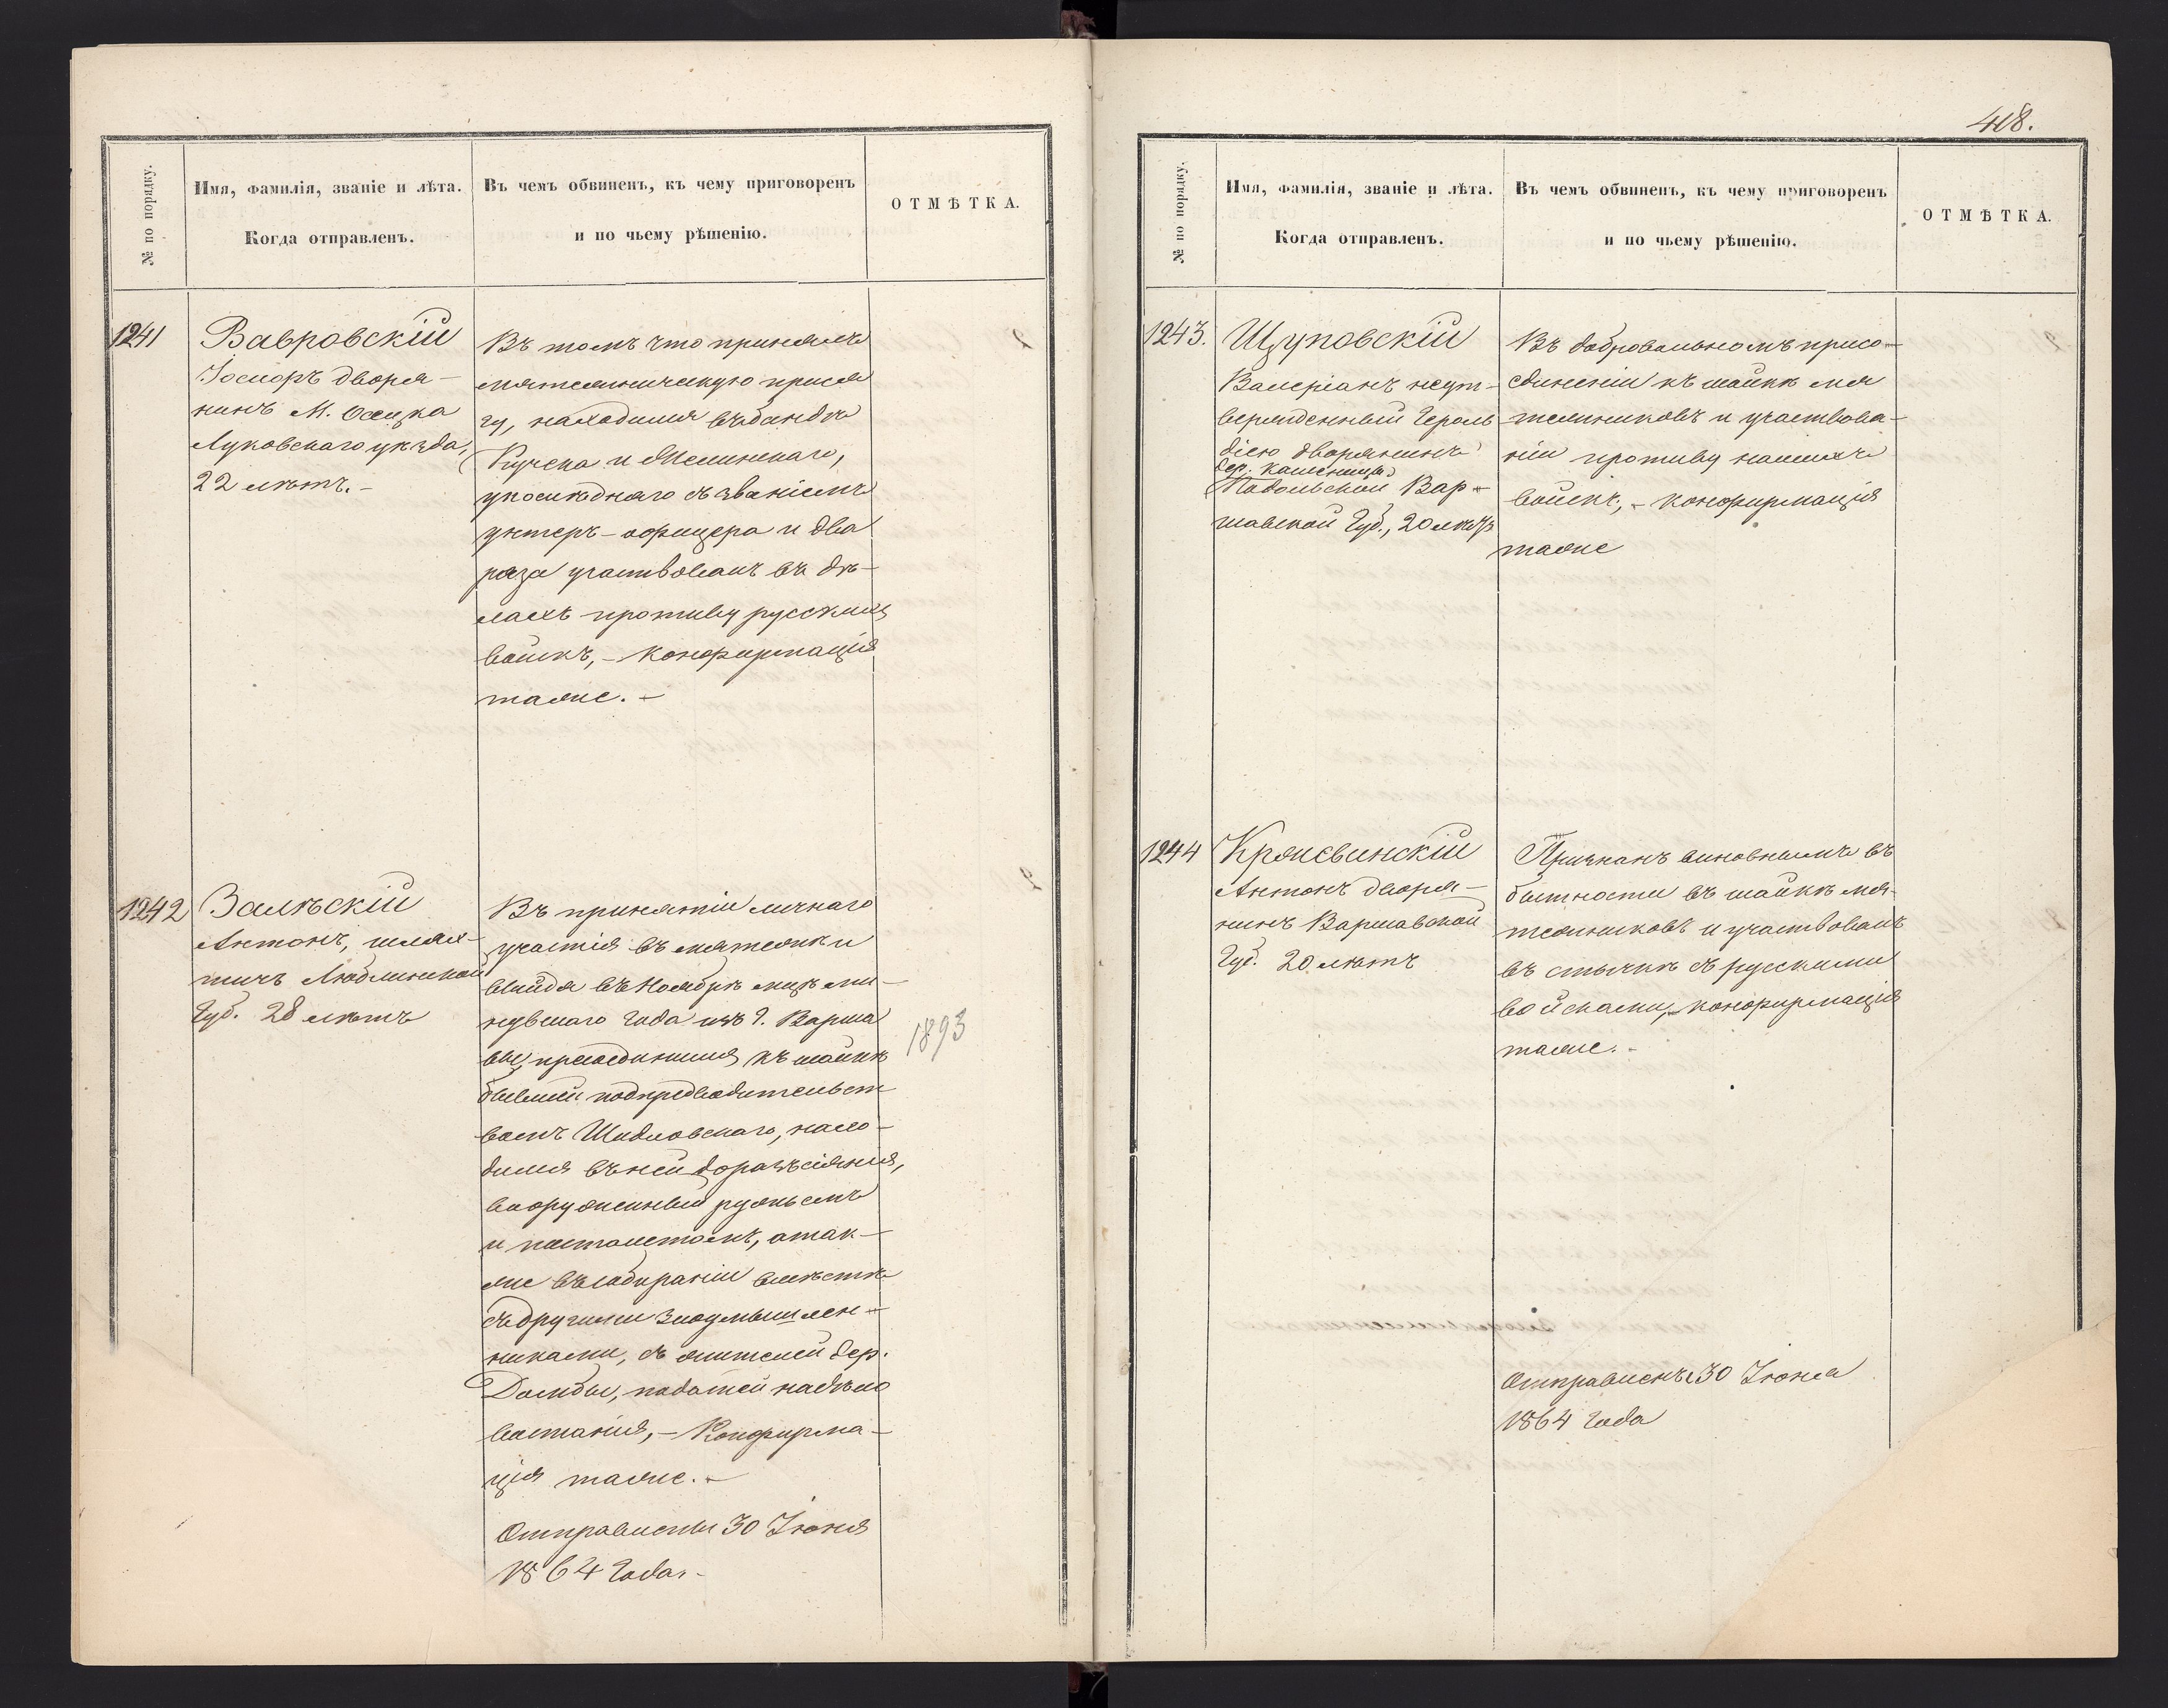 № по порядку.
Имя, фамилія, званіе и лѣта.
Когда отправленъ.
Въ чемъ обвиненъ, къ чему приговоренъ
и по чьему рѣшенію.
ОТМѢТКА.
1241
Вавровскій
Іосифъ дворя-
нинъ М. Осецка
Луковскаго уѣзда,
22 лѣтъ. -
Въ томъ что принялъ
мятежническую прися
гу, находился въ бандѣ
и
у послѣдняго въ званіемъ
унтеръ-офицера и два
раза участвовалъ въ дѣ-
лахъ противу русскихъ
войскъ, - конфирмація
таже. -
1242
Залѣскій
Антонъ, шлях-
тичъ Люблинской
Губ. 28 лѣтъ
Въ принятіи личнаго
участія въ мятежѣ и
выйдя въ Ноябрѣ мцѣ ми-
нувшаго года изъ г. Варша
вы, присоединился къ шайкѣ
бывшей подпредводительст
вомъ Шидловскаго, нахо-
дился въ ней до разсѣянія,
вооруженный ружьемъ
и пистолетомъ, а так-
же въ собираніи вмѣстѣ
съ другими злоумышлен-
никами, съ жителей дер.
Домбы, податей на дѣло
востанія, - Конфирма-
ція таже. -
Отправлены 30 Іюня
1864 Года. -
1893
418.
№ по порядку.
Имя, фамилія, званіе и лѣта.
Когда отправленъ.
Въ чемъ обвиненъ, къ чему приговоренъ
и по чьему рѣшенію.
ОТМѢТКА.
1243.
Щуповскій
Валеріанъ неут-
вержденный Героль
діею дворянинъ
дер.
Подольской Вар-
шавской Губ., 20 лѣтъ
Въ добровольномъ присо-
единеніи къ шайкѣ мя
тежниковъ и участвова-
ніи противу нашихъ
войскъ, - конфирмація
таже
1244
Антонъ дворя-
нинъ Варшавской
Губ. 20 лѣтъ
Признанъ виновнымъ въ
бытности въ шайкѣ мя-
тежниковъ и участвовалъ
въ стычкѣ съ русскими
войсками, - конфирмація
таже. -
Отправленъ 30 Іюня
1864 года